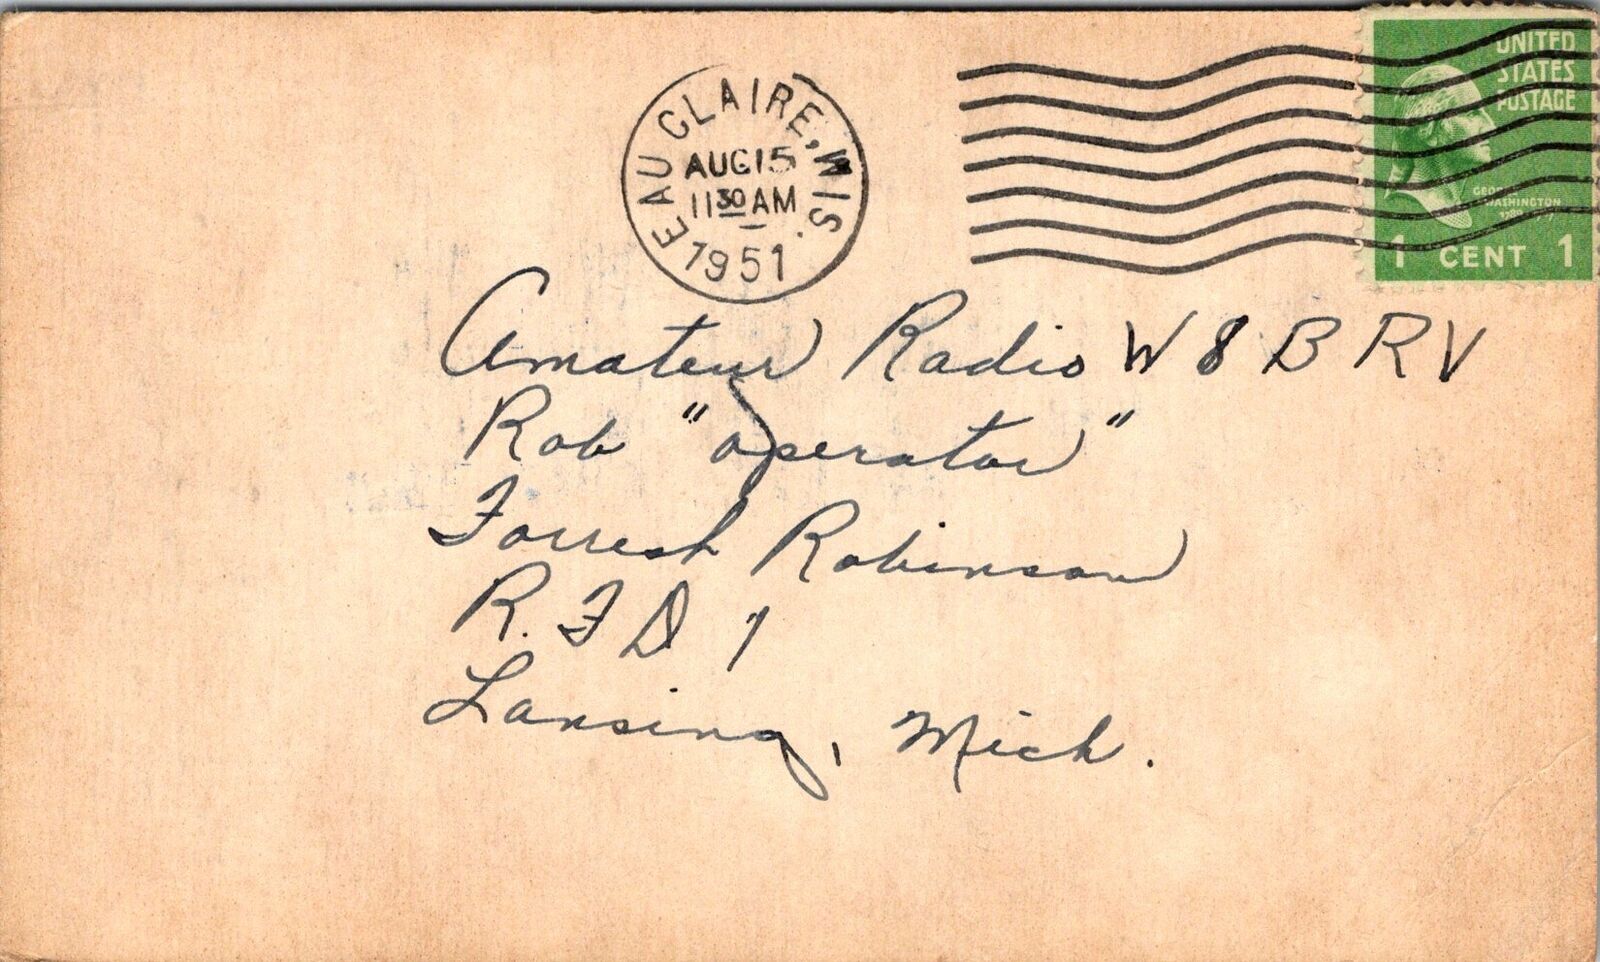 EAU CLAIRE, WIS.
AUG 15
11 30 AM
1951
UNITED
STATES
POSTAGE
WASHINGTON
1 CENT 1
Amateur Radio W8BRV
Rob "operator"
Forrest Robinson
R. F D 1
Lansing, Mich.